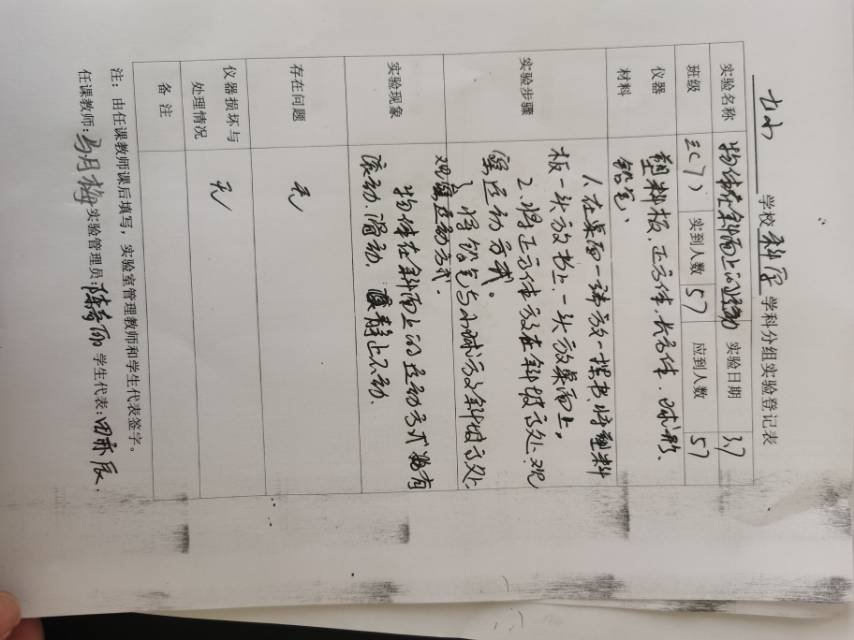 七小 学校 科学 学科分组实验登记表
实验名称 物体在斜面上的运动 实验日期 3.7
班级 三(7) 实到人数 57 应到人数 57
仪器材料 塑料板、正方体、长方体、球形、
铅笔、
实验步骤 1、在桌面一端放一摞书,将塑料
板一头放书上,一头放桌面上,
2、将正方体放在斜坡高处、观
察运动方式。
3、将铅笔与小球放斜坡高处
观察运动方式.
实验现象 物体在斜面上的运动方式有
滚动、滑动、静止不动.
存在问题 无
仪器损坏与处理情况 无
备注
注:由任课教师课后填写,实验室管理教师和学生代表签字。
任课教师:马月梅 实验管理员:陈 丽 学生代表:田亦辰.